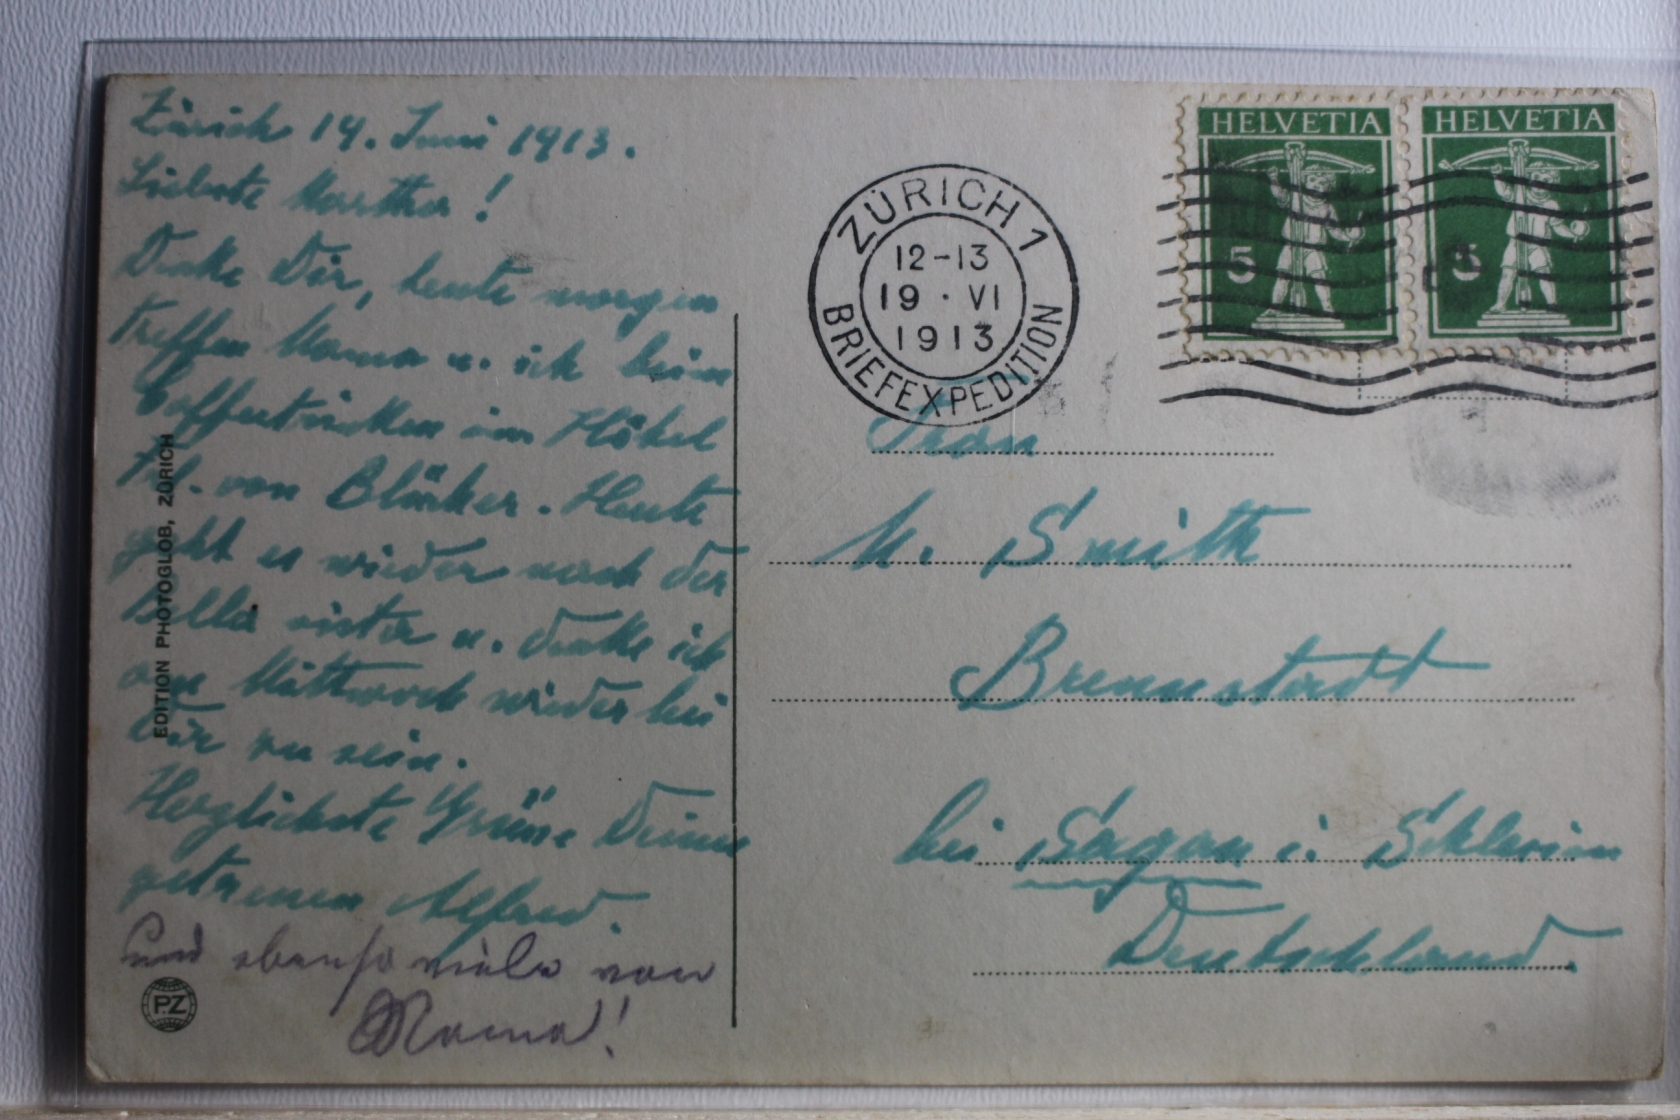 Zürich 19. Juni 1913.
Liebste Martha!
Denke Dir, heute morgen
treffen Mama u. ich beim
Caffeetrinken im Hôtel
von Blücher. Heute
geht es wieder nach der
Bella vista u. denke ich
am Mittwoch wieder bei
Dir zu sein.
Herzlichste Grüsse Deines
getreuen Alfred.
Und ebenso viele von
Mama!
EDITION PHOTOGLOB, ZÜRICH
PZ
ZÜRICH 1
12-13
19 · VI
1913
BRIEFEXPEDITION
HELVETIA
5
HELVETIA
5
Frau
M. Smith
Brennstadt
bei Sagan i. Schlesien
Deutschland.